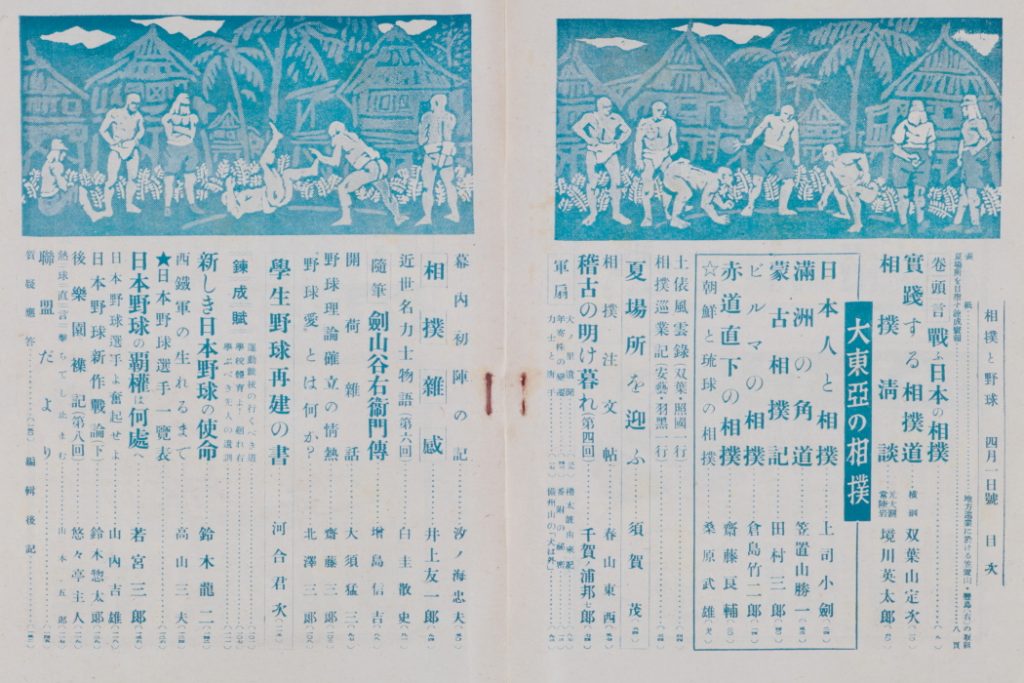 相撲と野球 四月一日號 目次
卷頭言 戰ふ日本の相撲
實踐する相撲道 横綱 双葉山定次
相撲清談 境川英太郎
大東亞の相撲
日本人と相撲 上司小劍
滿洲の角道 笠置山勝一
蒙古相撲記 田村三郎
ビルマの相撲 倉島竹二郎
赤道直下の相撲 齋藤良輔
☆朝鮮と琉球の相撲 桑原武雄
土俵風雲錄(双葉・照國一行)
相撲巡業記(安藝・羽黑一行)
夏場所を迎ふ 須賀茂
相撲注文帖 春山東西
稽古の明け暮れ(第四回) 千賀ノ浦邦七郎
軍扇
幕內初陣の記 汐ノ海忠夫
相撲雜感 井上友一郎
近世名力士物語(第六回) 白圭散史
隨筆 劍山谷右衞門傳 增島信吉
開荷雜話 大須猛三
野球理論確立の情熱 齋藤三郎
野球愛とは何か? 北澤三郎
學生野球再建の書 河合君次
鍊成賦
運動競技の行くべき道
學校體育よ創れ右
學ぶべき先人の遺訓
新しき日本野球の使命 鈴木龍二
西鐵軍の生れるまで 高山三夫
★日本野球選手一覽表
日本野球の覇權は何處へ 若宮三郎
日本野球選手よ奮起せよ 山內吉雄
日本野球新作戰論(下) 鈴木惣太郎
後樂園襍記(第八回) 悠々亭主人
熱球直言 擊ちてし止まむ 山本五郎
聯盟だより
質疑應答 編輯後記